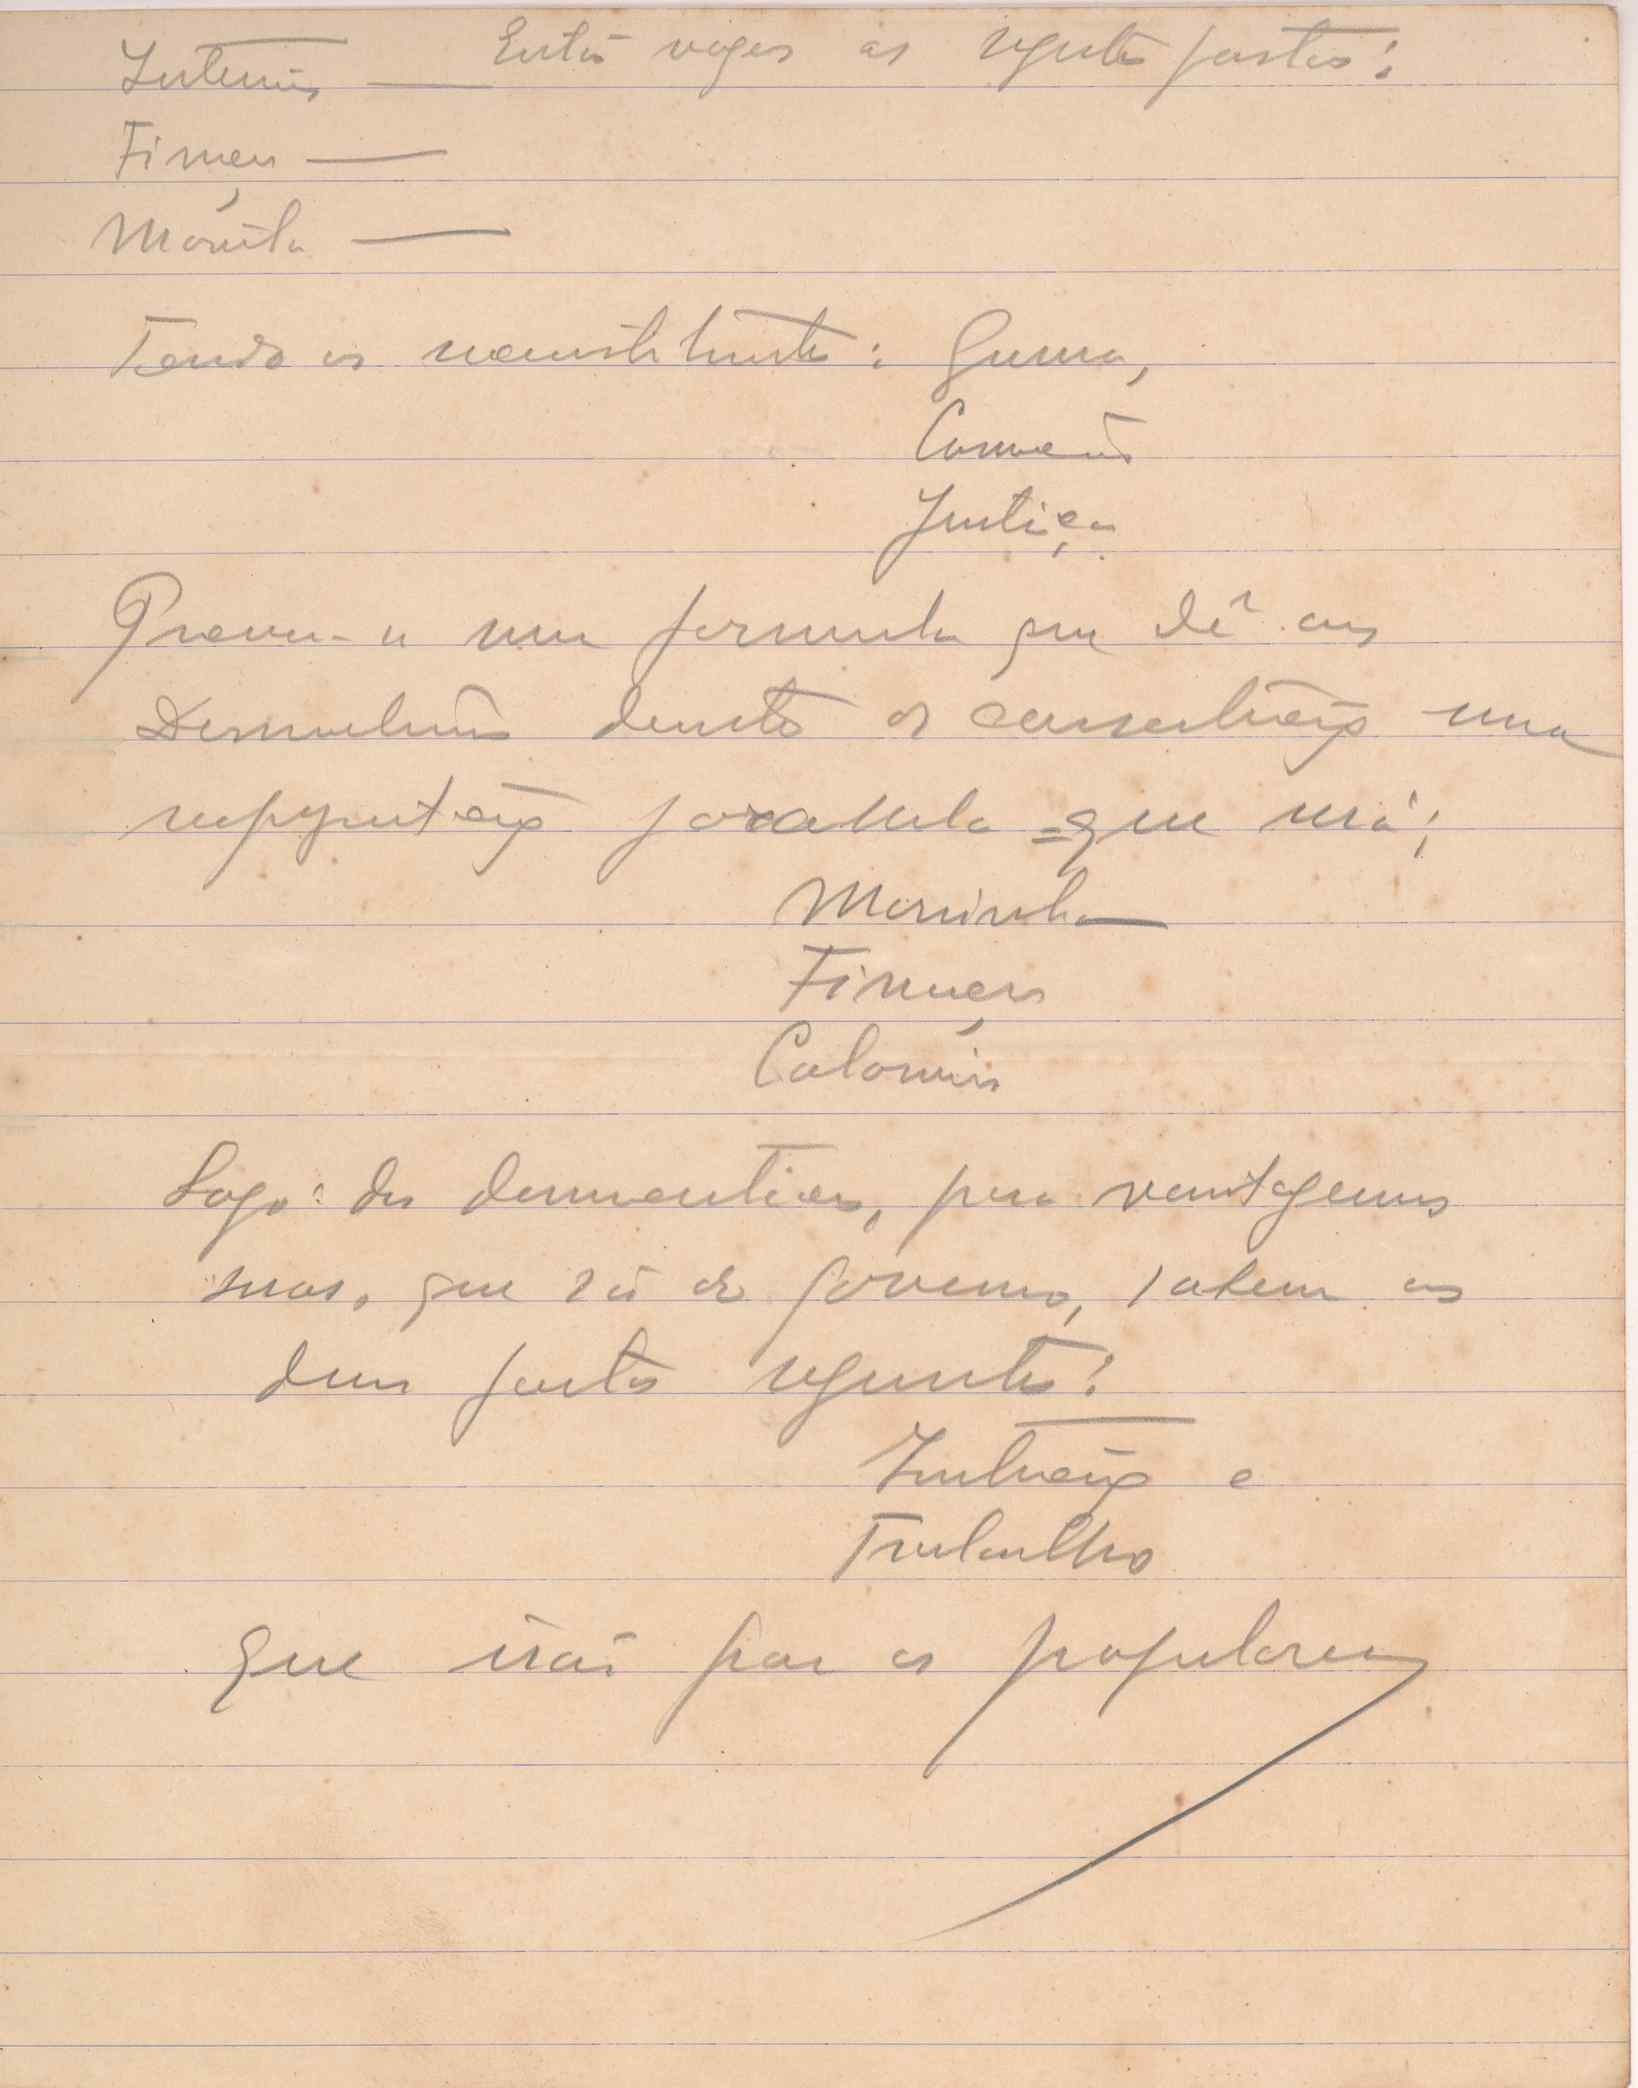 Estão vagas as seguintes pastas:
Interior —
Finanças —
Marinha —
Tendo os reconstituintes: Guerra,
Comercio
Justiça
Procura-se uma formula que dê aos
Democraticos dentro da concentração uma
representação paralela = que será:
Marinha
Finanças
Colonias
Logo: dos democraticos, para
mas, que são do governo, saem as
duas pastas seguintes:
Instrução e
Trabalho
que irão para os populares